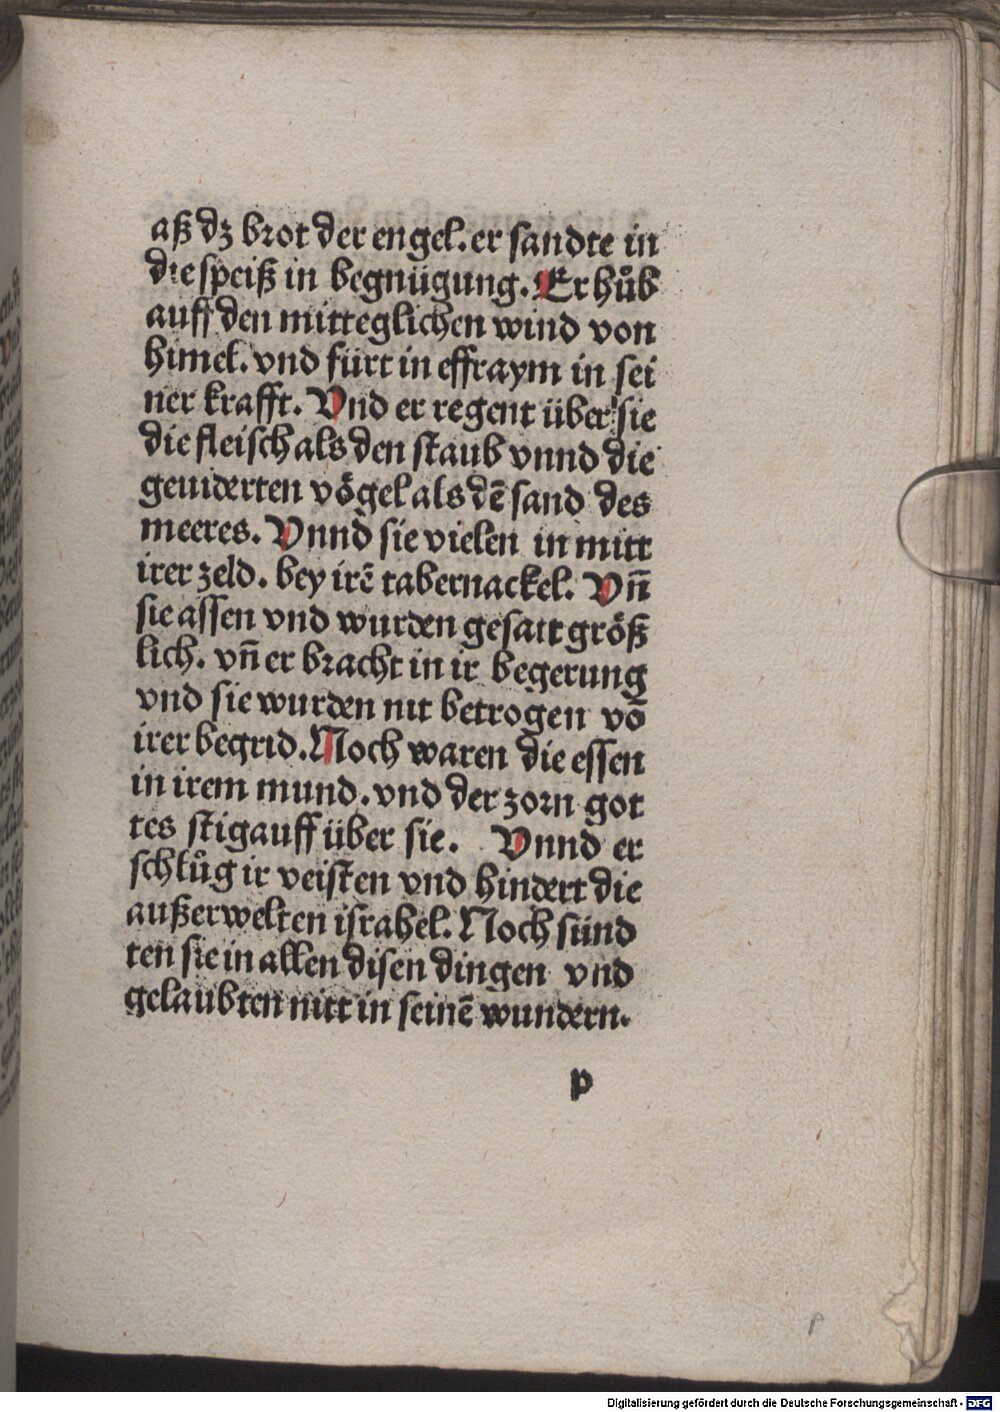 aß dz brot der engel. er sandte in
die speiß in begnügung. Er hůb
auff den mitteglichen wind von
himel. vnd fürt in effraym in sei
ner krafft. Vnd er regent über sie
die fleisch als den staub vnnd die
geuiderten vögel als dē sand des
meeres. Vnnd sie vielen in mitt
irer zeld. bey irē tabernackel. Vñ
sie assen vnd wurden gesatt größ
lich. vñ er bracht in ir begerung
vnd sie wurden nit betrogen vō
irer begrid. Noch waren die essen
in irem mund. vnd der zorn got
tes stig auff über sie. Vnnd er
schlůg ir veisten vnd hindert die
außerwelten israhel. Noch sünd
ten sie in allen disen dingen vnd
gelaubten nitt in seinē wundern.
p
p
Digitalisierung gefördert durch die Deutsche Forschungsgemeinschaft - DFG